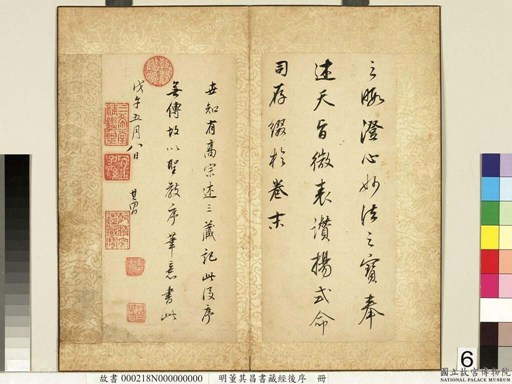 之暇澄心妙法之寶奉
述天旨微表讚揚式命
司存綴於卷末
世知有高宗述三藏記此後序
無傳故以聖教序筆意書此
戊午五月八日 其昌
三希堂精鑑璽
宜子孫
6
國立故宮博物院
NATIONAL PALACE MUSEUM
故書 000218N000000000 明董其昌書藏經後序 冊